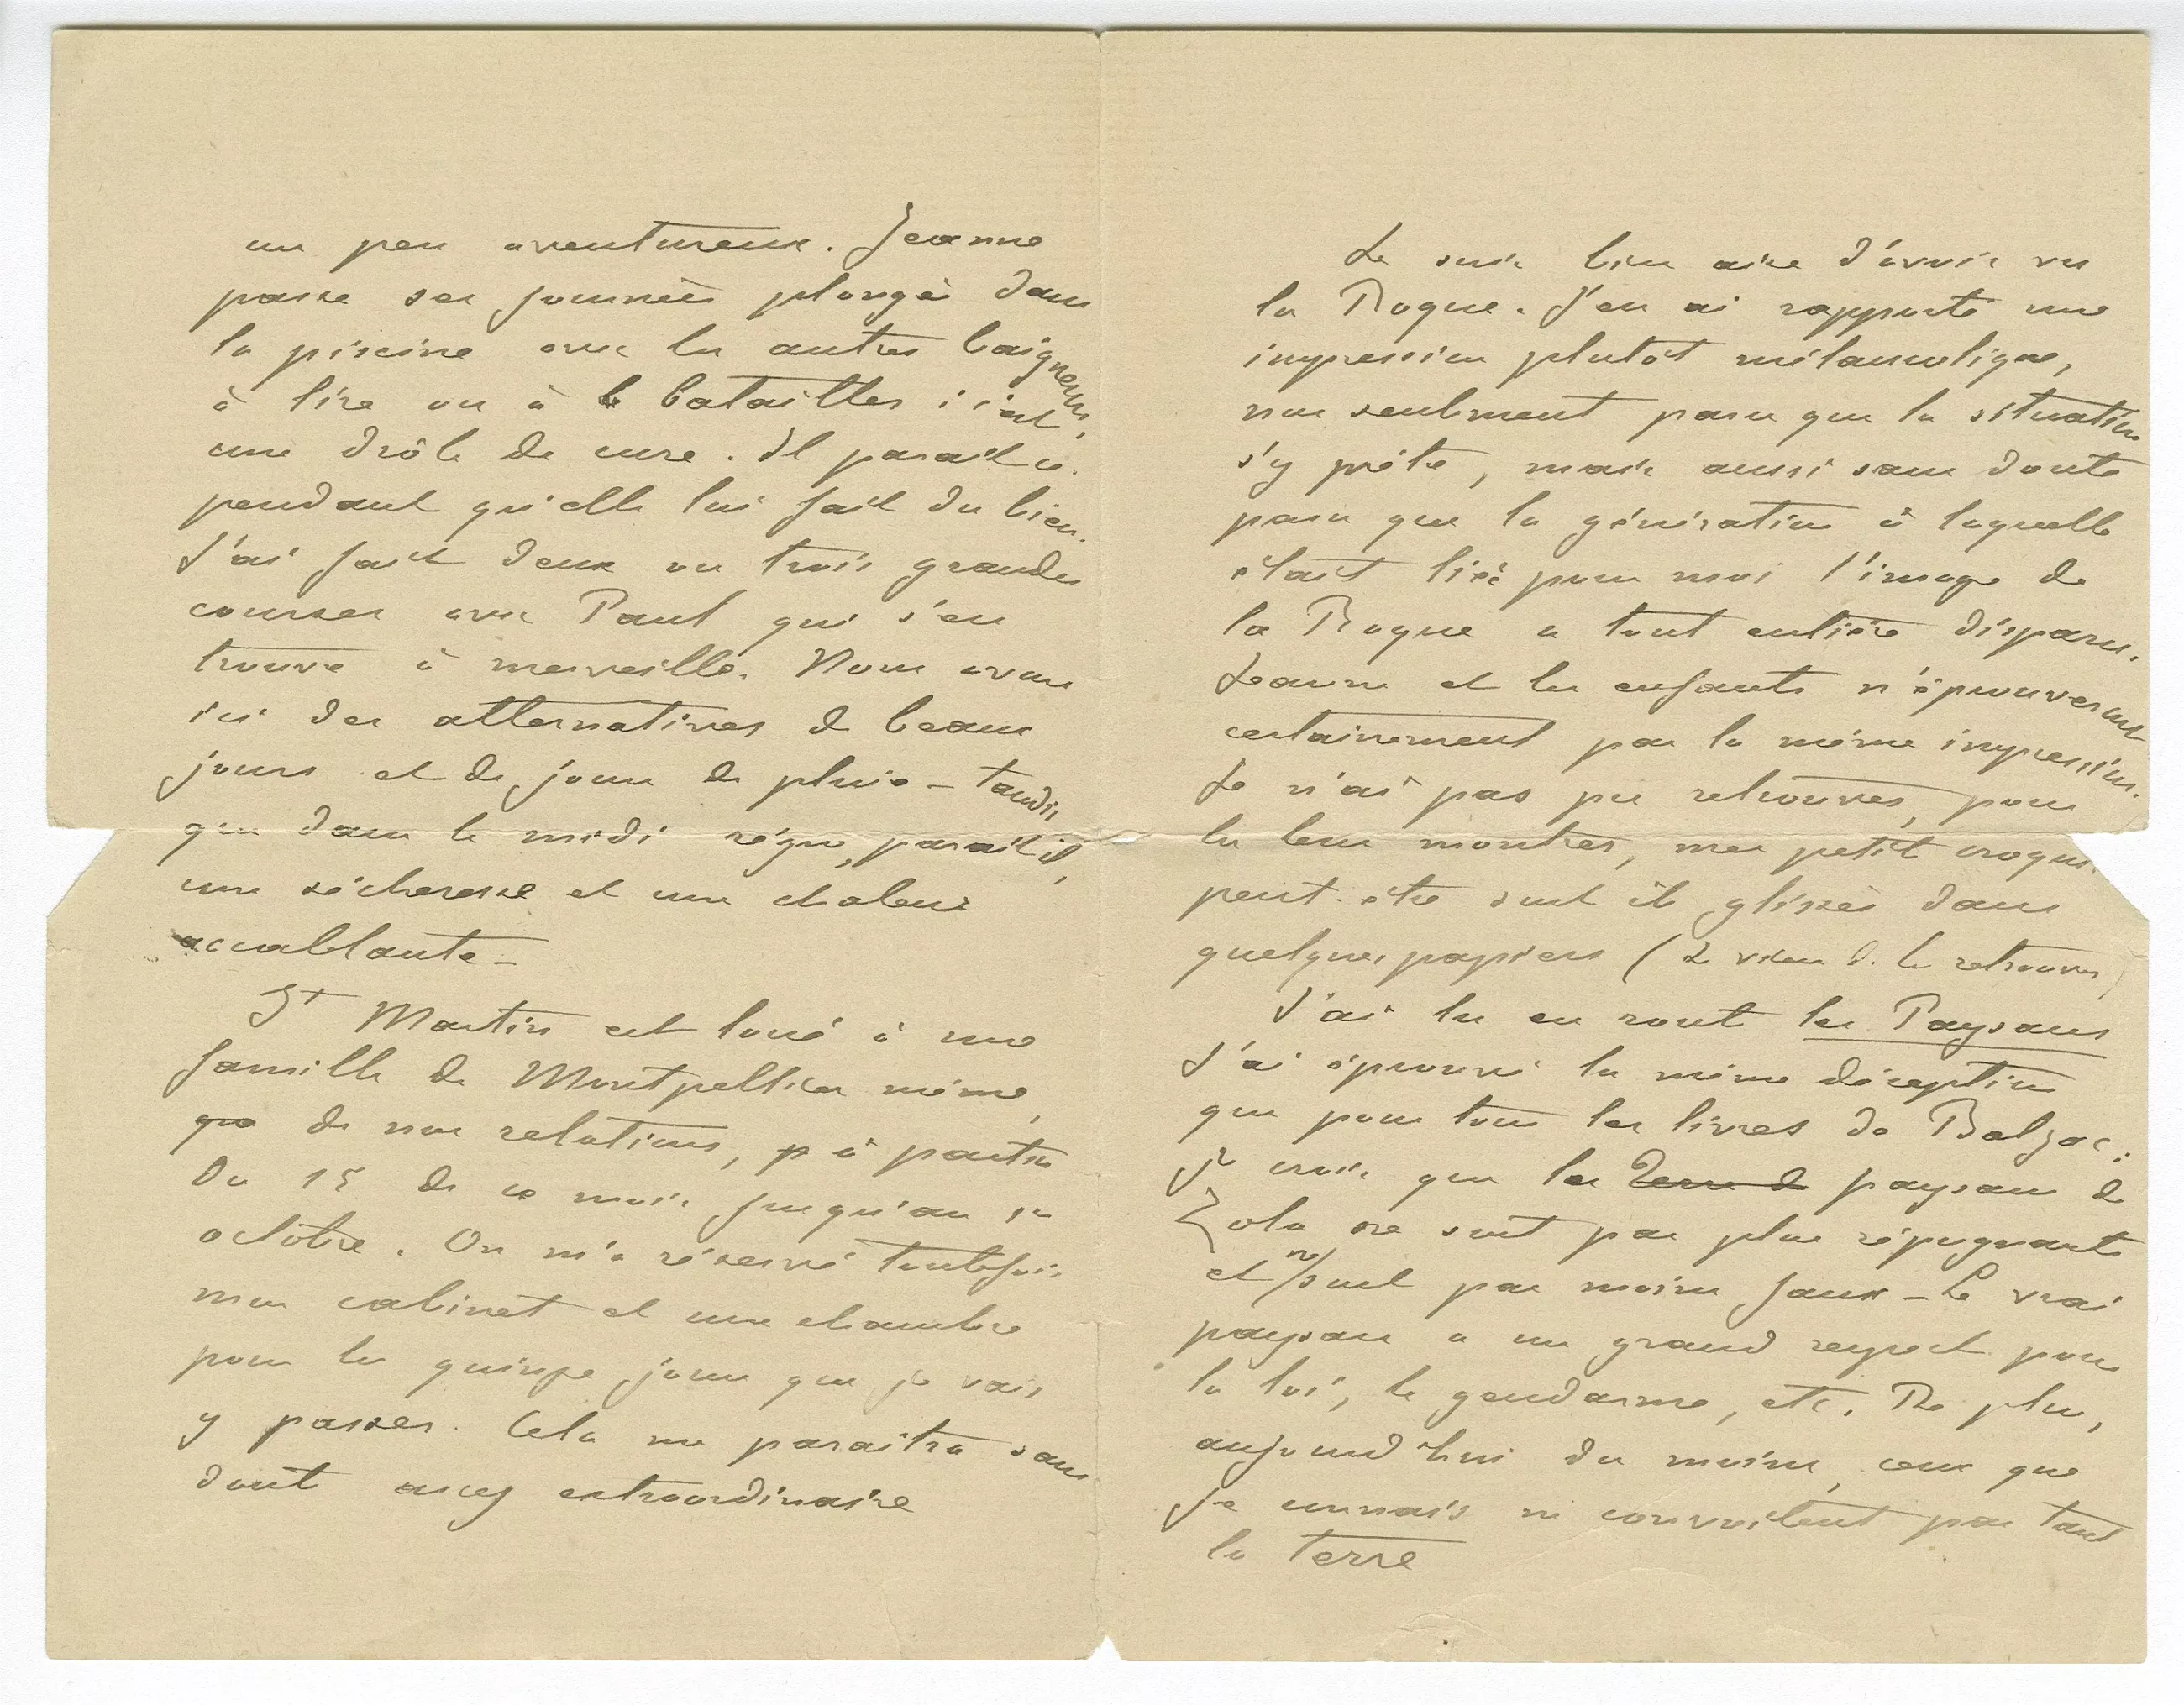 un peu aventureux. Jeanne
passe ses journées plongée dans
la piscine avec les autres baigneurs,
à lire ou à batailler ; c'est
une drôle de cure. Il parait ce-
pendant qu'elle lui fait du bien.
J'ai fait deux ou trois grandes
courses avec Paul qui s'en
trouve à merveille. Nous avons
ici des alternatives de beaux
jours et de jours de pluie – tandis
que dans le midi règne, parait il,
une sécheresse et une chaleur
accablante –
St Martin est loué à une
famille de Montpellier même,
que de nos relations, p à partir
du 15 de ce mois jusqu'au 1er
octobre. On m'a réservé toutefois
mon cabinet et une chambre
pour les quinze jours que je vais
y passer. Cela me paraitra sans
dout assez extraordinaire
Je suis bien aise d'avoir vu
la Roque. J'en ai rapporté une
impression plutôt mélancolique,
non seulement parce que la situation
s'y prête, mais aussi sans doute
parce que la génération à laquelle
était liée pour moi l'image de
la Roque a tout entière disparu.
Jeanne et les enfants n'éprouveront
certainement pas la même impression.
Je n'ai pas pu retrouver, pour
les leur montrer, mes petits croquis.
peut-être sont ils glissés dans
quelques papiers (Je viens de les retrouver)
J'ai lu en rout les Paysans
J'ai éprouvé la même déception
que pour tous les livres de Balzac :
je crois que les Terre d paysans de
Zola ne sont pas plus répugnants
et ne sont pas moins faux – Le vrai
paysan a un grand respect pour
la loi, le gendarme, etc. De plus,
aujourd'hui du moins, ceux que
je connais ne convoitent pas tant
la terre